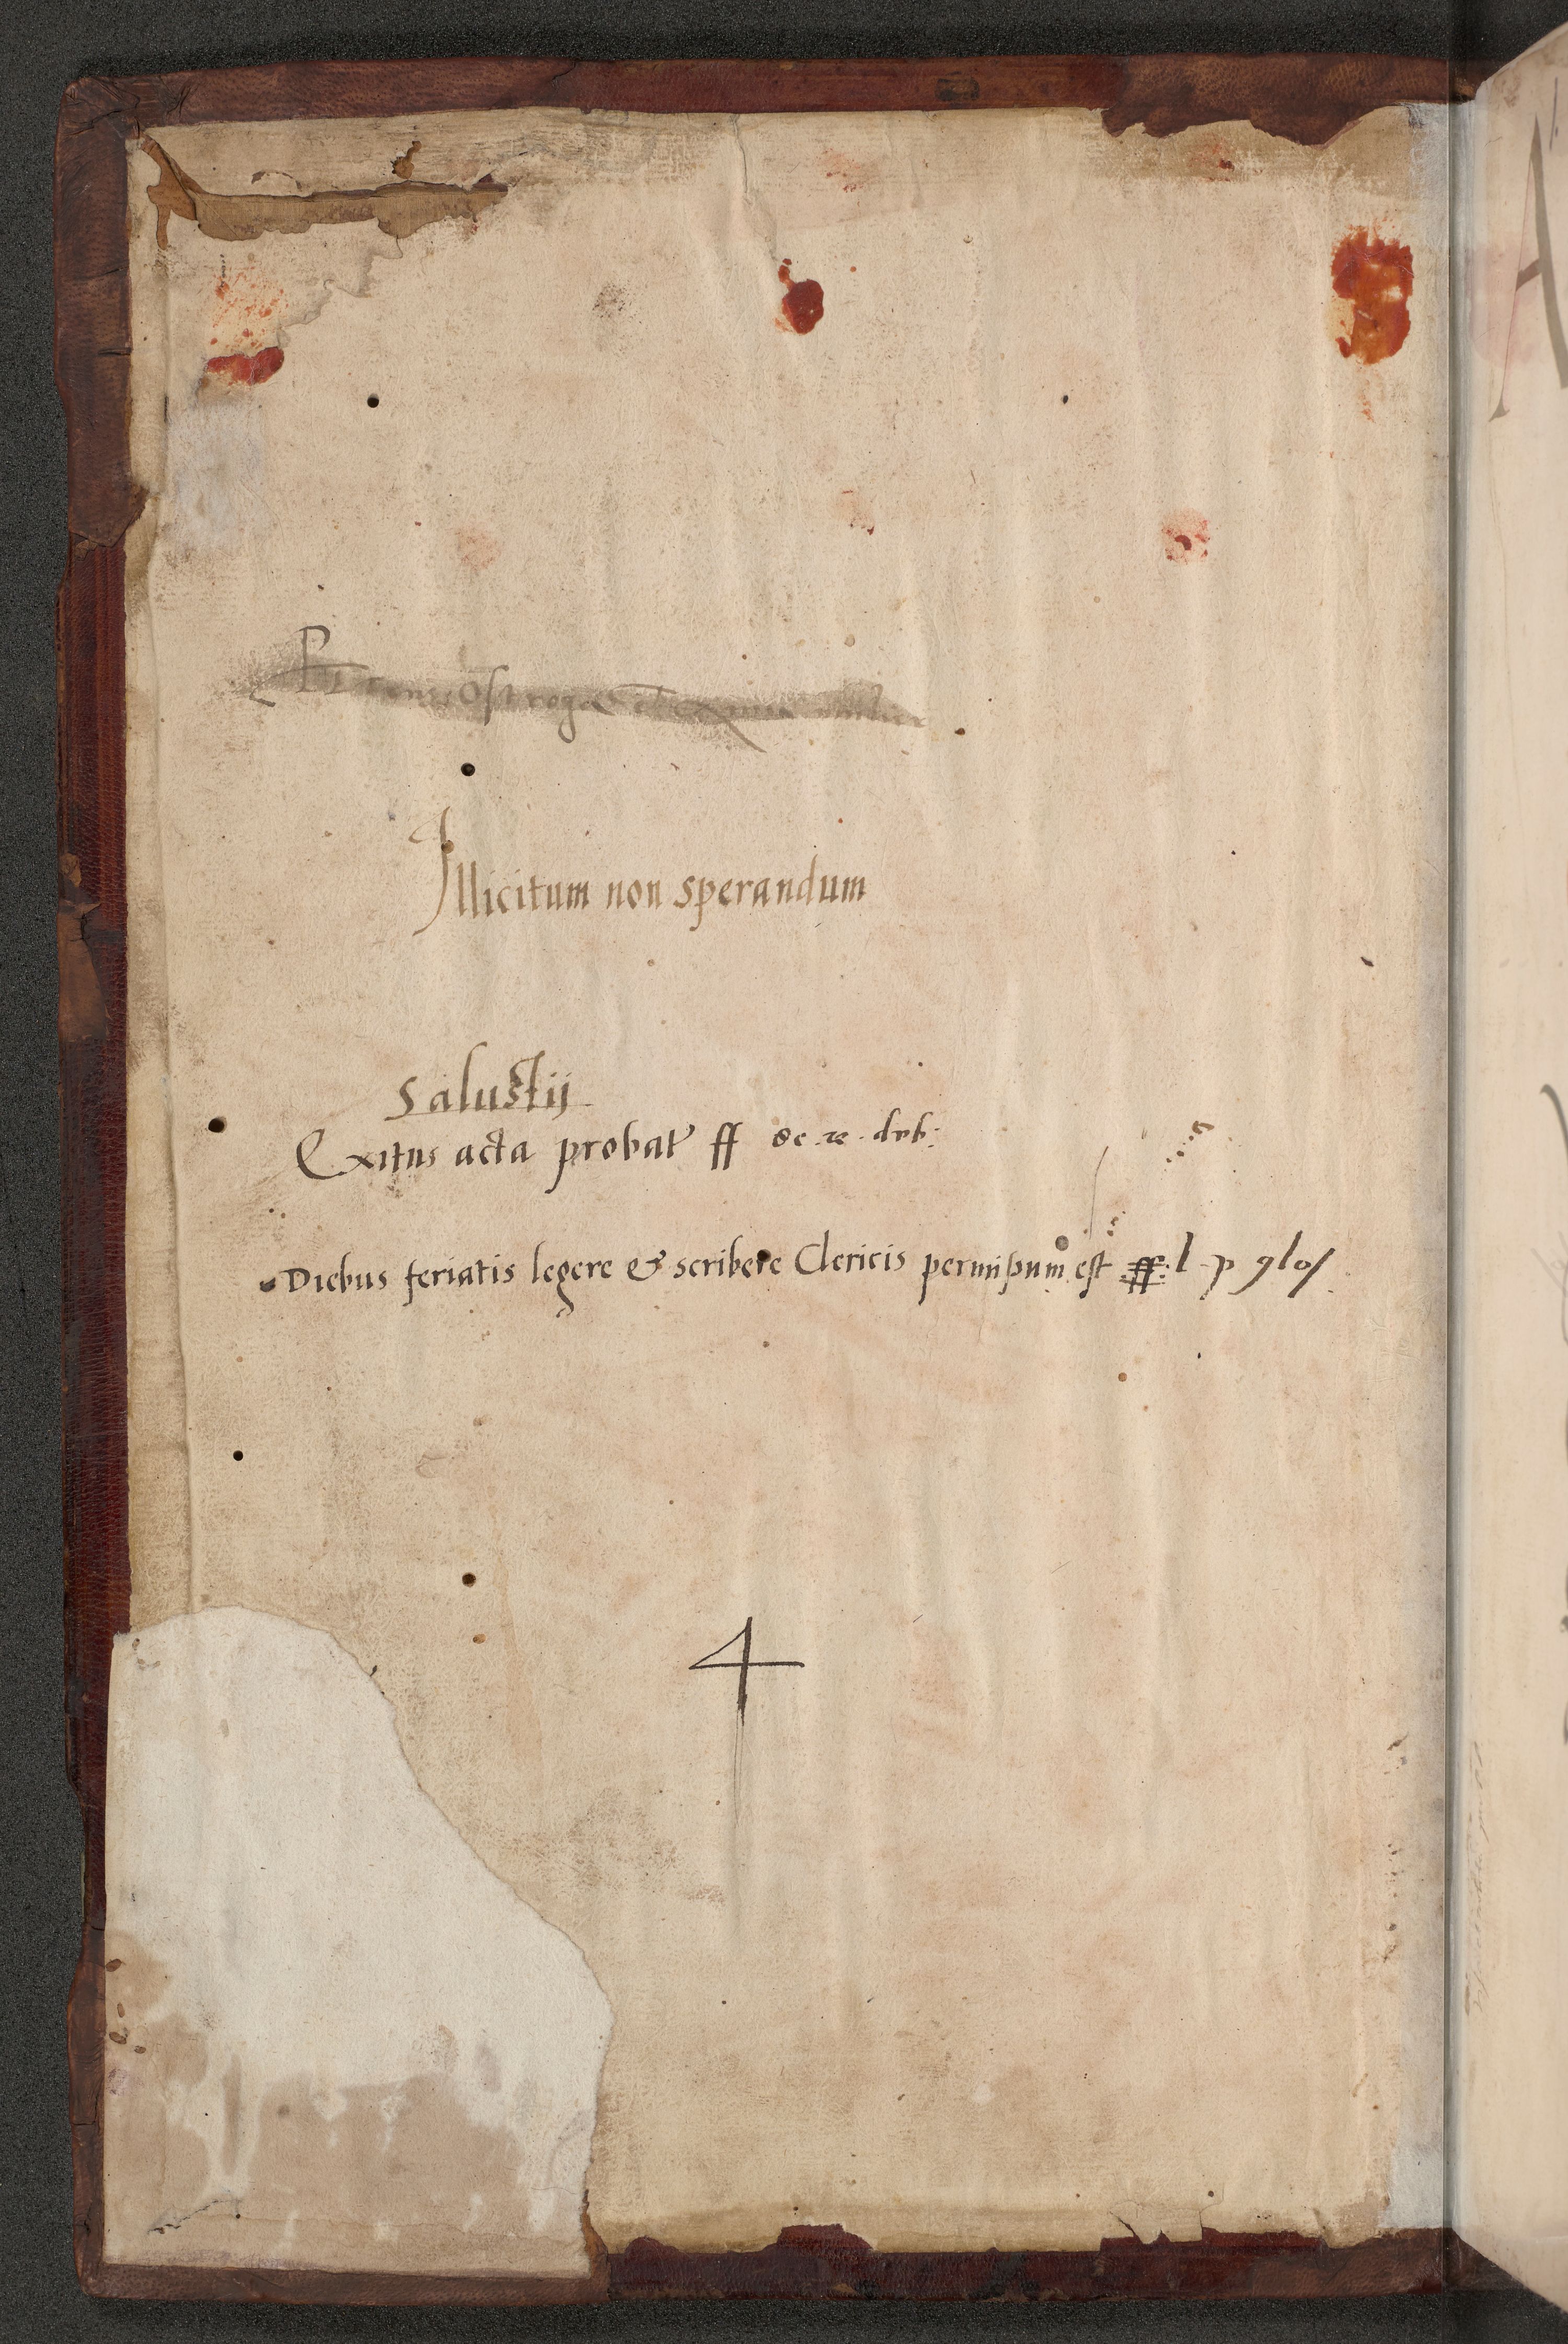 Ostroga
Illicitum non sperandum
Salustij
Exitus acta probat ff de re dub:
Diebus feriatis legere & scribere Clericis permissum est ff: l p glos
4